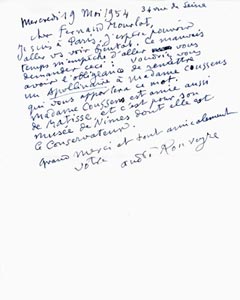 Mercredi 19 Mai 1954 34 rue de Seine
cher Fernand Mourlot,
Je suis à Paris, j'espère pouvoir
aller vous voir bientôt. Le mauvais
temps m'empêche d'aller vous
demander ceci : Voudriez vous
avoir l'obligeance de remettre
un Apollinaire à Madame Coussens
qui vous apportera ce mot.
Madame Coussens est amie aussi
de Matisse, et c'est pour son
musée de Nîmes dont elle est
le Conservateur.
Grand merci et tout amicalement
votre André Rouveyre